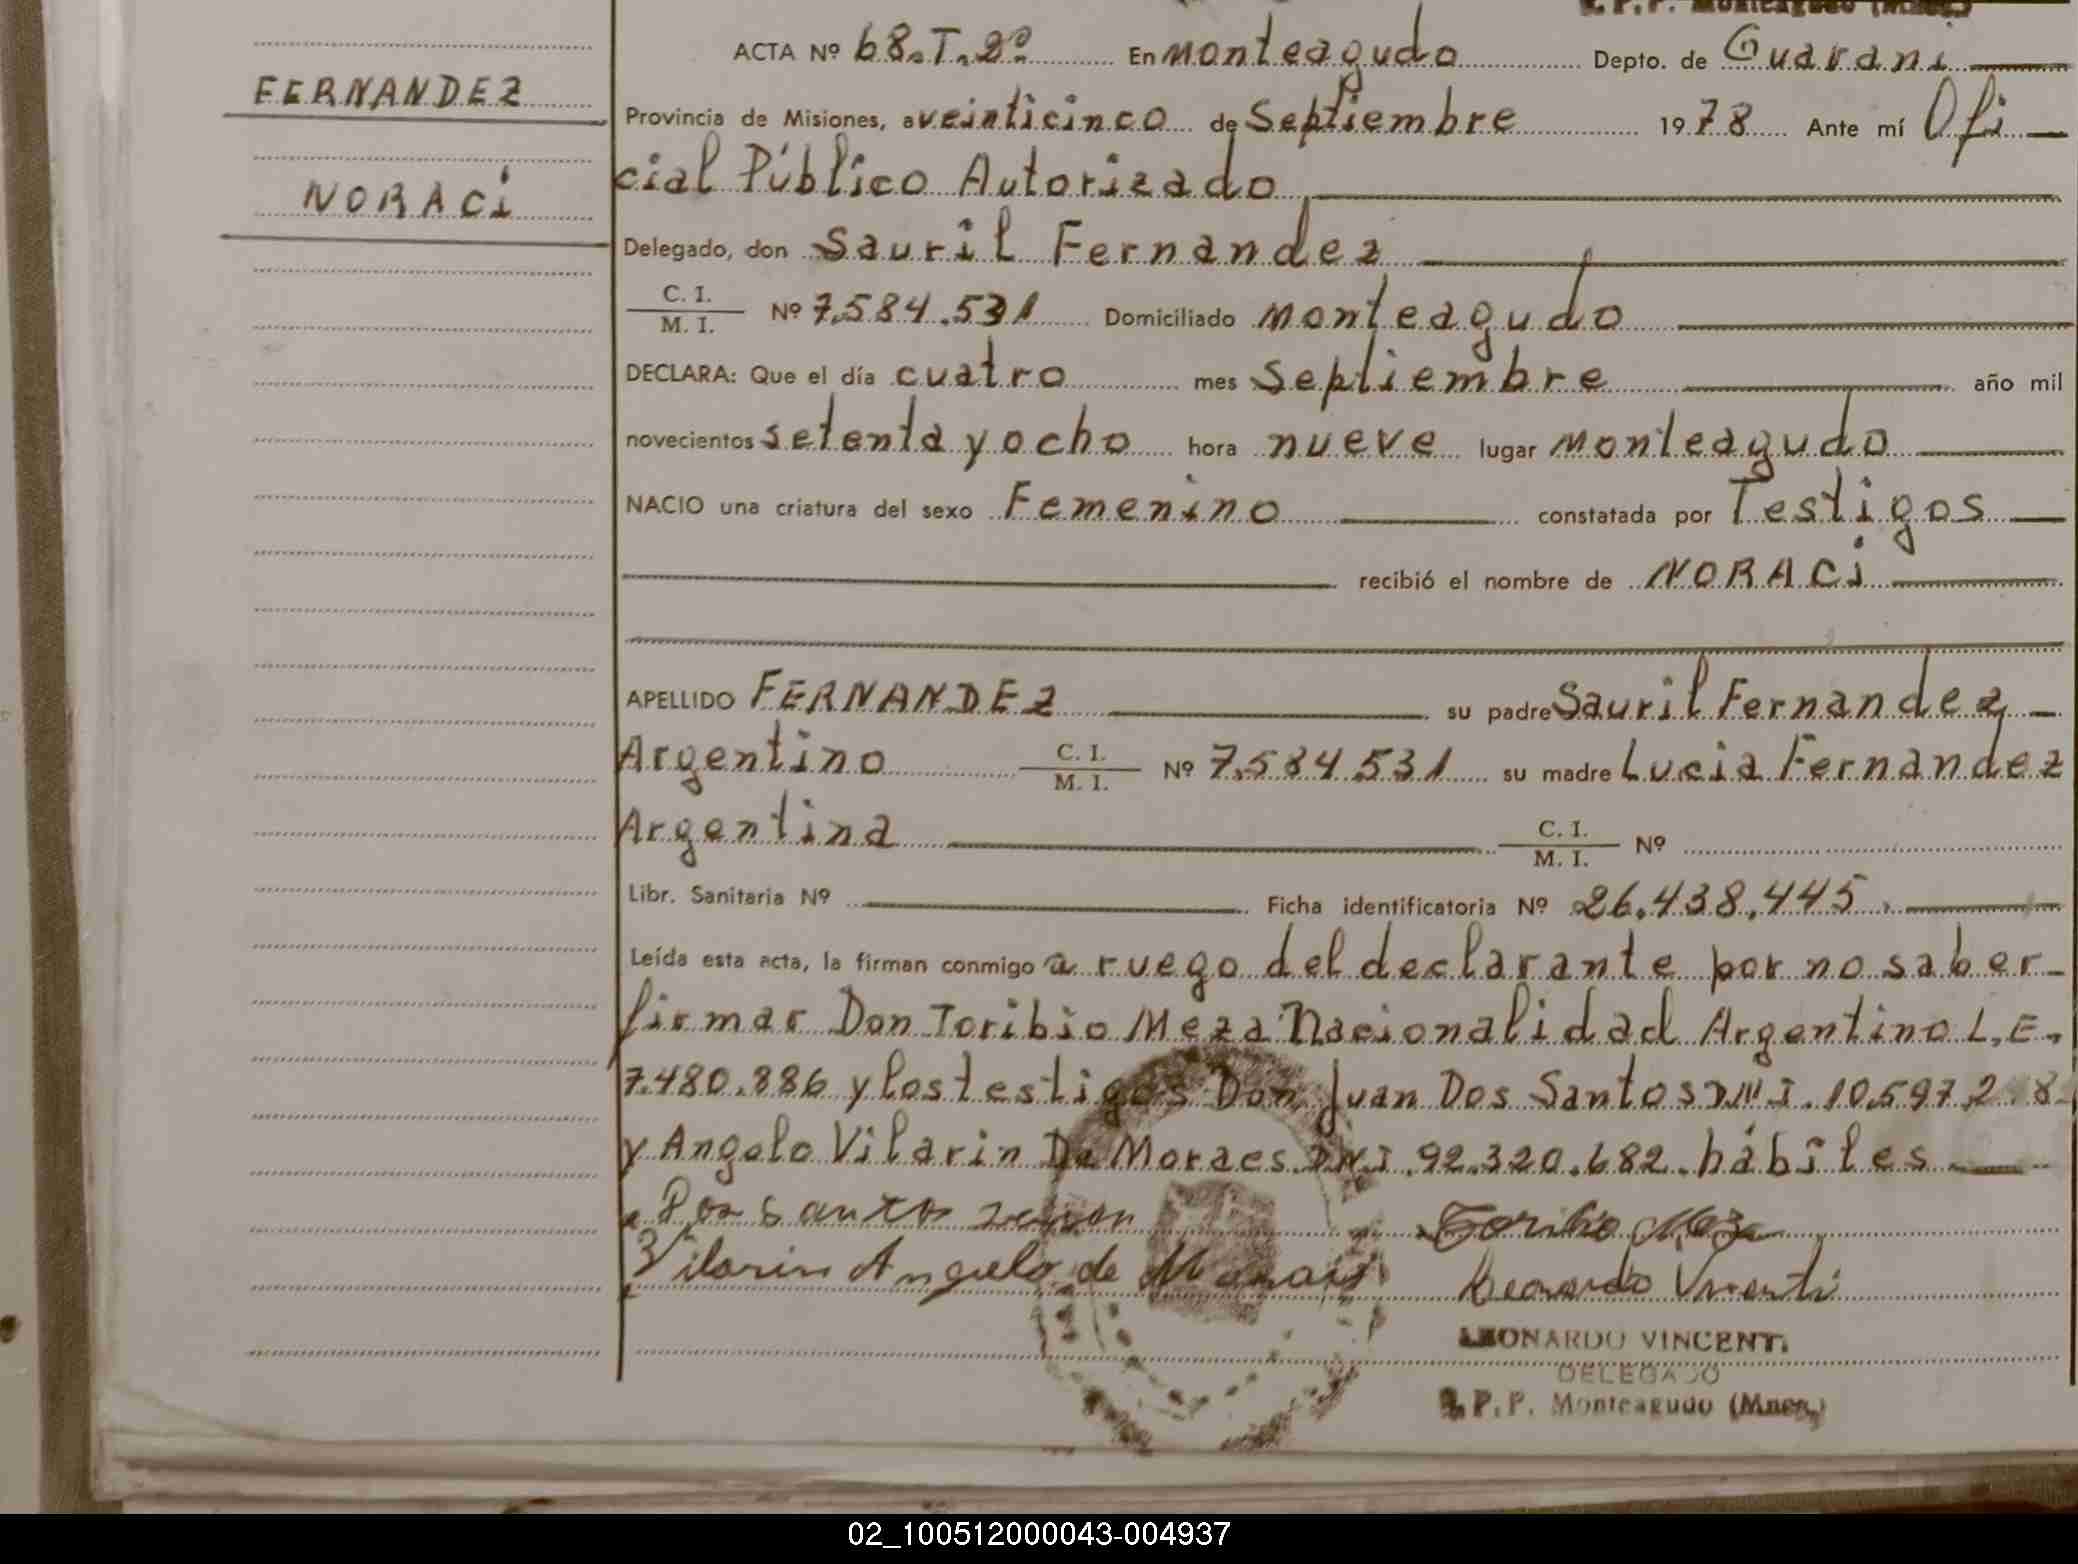 ACTA Nº 68.T.2º En Monteagudo Depto. de Guarani
FERNANDEZ
Provincia de Misiones, a veinticinco de Septiembre 1978 Ante mí Ofi
NORACi
cial Público Autorizado
Delegado, don Sauril Fernandez
C. I.
M. I. Nº 7.584.531 Domiciliado Monteagudo
DECLARA: Que el día cuatro mes Septiembre año mil
novecientos setenta y ocho hora nueve lugar Monteagudo
NACIO una criatura del sexo Femenino constatada por Testigos
recibió el nombre de NORACi
APELLIDO FERNANDEZ su padre Sauril Fernandez
Argentino C. I. M. I. Nº 7.584.531 su madre Lucia Fernandez
Argentina C. I. M. I. Nº
Libr. Sanitaria Nº Ficha identificatoria Nº 26.438.445.
Leída esta acta, la firman conmigo a ruego del declarante por no saber
firmar Don Toribio Meza Nacionalidad Argentino L.E.
7.480.886 y los testigos Don Juan Dos Santos D.N.I.
y Angelo Vilarin De Moraes D.N.I. 92.320.682. hábiles
Dos santos
Toribio Meza
Vilarin Angelo de Moraes
Leonardo Vincenti
LEONARDO VINCENTI
DELEGADO
P.P. Monteagudo (Mnes.)
02_100512000043-004937